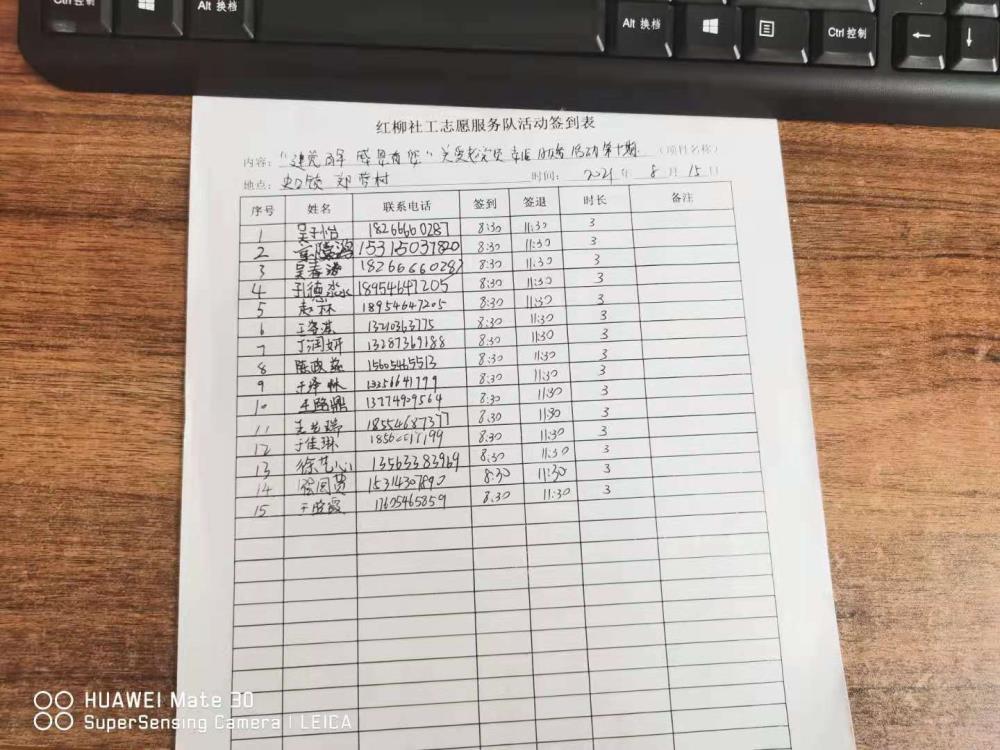 Ctrl 控制
Alt 换档
Alt 换档
Ctrl 控制
红柳社工志愿服务队活动签到表
内容：“建党百年 感恩有您”关爱老党员 活动第十期 （项目名称）
地点： 史口镇 郑营村 时间： 2021 年 8 月 15 日
序号 姓名 联系电话 签到 签退 时长 备注
1 吴子怡 18266660287 8:30 11:30 3
2 15315037820 8:30 11:30 3
3 吴春 18266660287 8:30 11:30 3
4 孔德淼 18954647205 8:30 11:30 3
5 林 18954647205 8:30 11:30 3
6 13210363775 8:30 11:30 3
7 丁润妍 13287369188 8:30 11:30 3
8 陈政 15605465513 8:30 11:30 3
9 于泽林 8:30 11:30 3
10 王路鼎 13274909564 8:30 11:30 3
11 瑞 18554687377 8:30 11:30 3
12 于佳琳 8:30 11:30 3
13 徐艺心 13563383969 8:30 11:30 3
14 张国 15314307890 8:30 11:30 3
15 霞 17605465859 8:30 11:30 3
HUAWEI Mate 30
SuperSensing Camera | LEICA